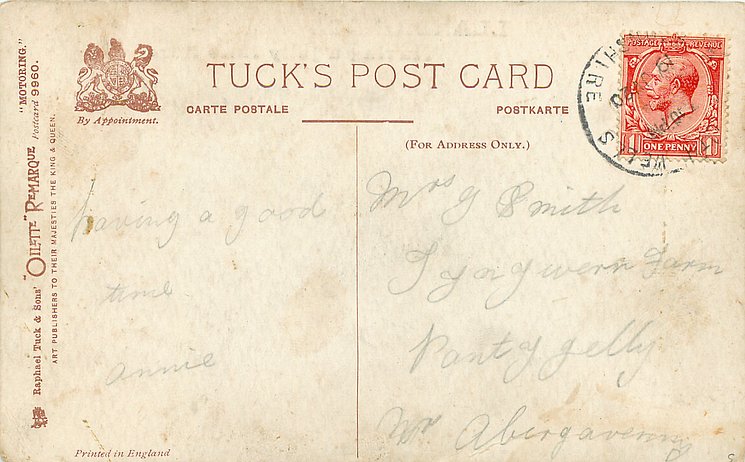 "MOTORING."
Postcard 9960.
"OILETTE" REMARQUE
Raphael Tuck & Sons'
ART PUBLISHERS TO THEIR MAJESTIES THE KING & QUEEN.
By Appointment.
TUCK'S POST CARD
CARTE POSTALE
POSTKARTE
(FOR ADDRESS ONLY.)
POSTAGE REVENUE
1 ONE PENNY 1
WELLS
SHIRE
having a good
time
annie
Mrs G Smith
farm
Pantygelly
Nr Abergavenny
Printed in England